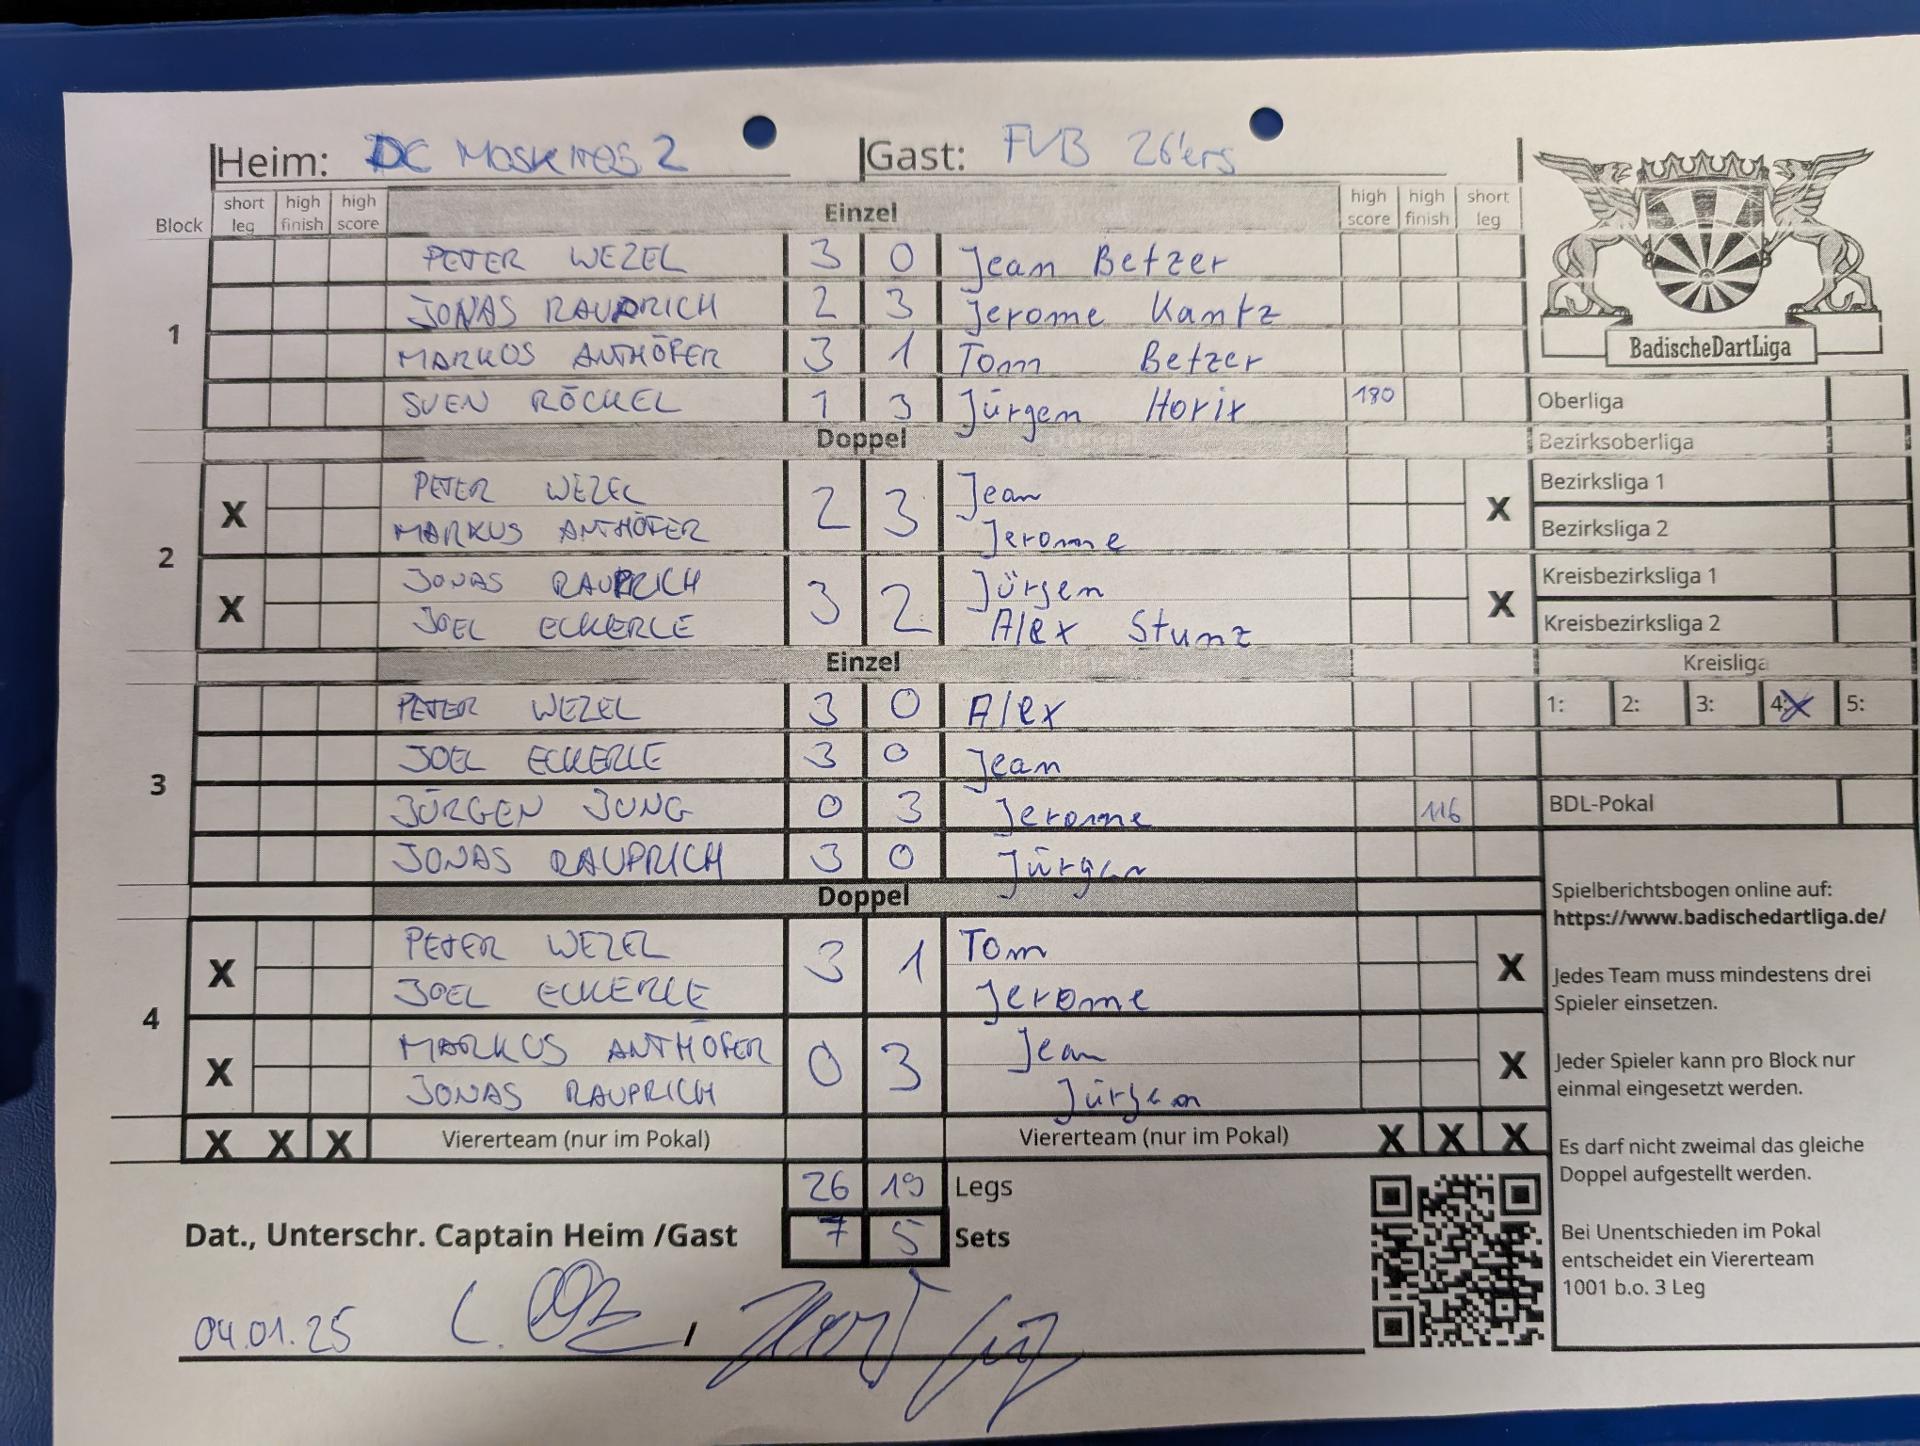 Heim: DC MOSKITOS 2 Gast: FVB 26'ers
Block short leg high finish high score Einzel high score high finish short leg
1
PETER WEZEL 3 0 Jean Betzer
JONAS RAUPRICH 2 3 Jerome Kantz
MARKUS ANTHÖFER 3 1 Tom Betzer
SVEN RÖCKEL 1 3 Jürgen Horix 180
Doppel
2
X PETER WEZEL 2 3 Jean X
MARKUS ANTHÖFER Jerome
X JONAS RAUPRICH 3 2 Jürgen X
JOEL ECKERLE Alex Stunz
Einzel
3
PETER WEZEL 3 0 Alex
JOEL ECKERLE 3 0 Jean
JÜRGEN JUNG 0 3 Jerome 116
JONAS RAUPRICH 3 0 Jürgen
Doppel
4
X PETER WEZEL 3 1 Tom X
JOEL ECKERLE Jerome
X MARKUS ANTHÖFER 0 3 Jean X
JONAS RAUPRICH Jürgen
X X X Viererteam (nur im Pokal) Viererteam (nur im Pokal) X X X
26 19 Legs
Dat., Unterschr. Captain Heim /Gast 7 5 Sets
04.01.25
BadischeDartLiga
Oberliga
Bezirksoberliga
Bezirksliga 1
Bezirksliga 2
Kreisbezirksliga 1
Kreisbezirksliga 2
Kreisliga
1: 2: 3: 4: X 5:
BDL-Pokal
Spielberichtsbogen online auf:
https://www.badischedartliga.de/
Jedes Team muss mindestens drei
Spieler einsetzen.
Jeder Spieler kann pro Block nur
einmal eingesetzt werden.
Es darf nicht zweimal das gleiche
Doppel aufgestellt werden.
Bei Unentschieden im Pokal
entscheidet ein Viererteam
1001 b.o. 3 Leg